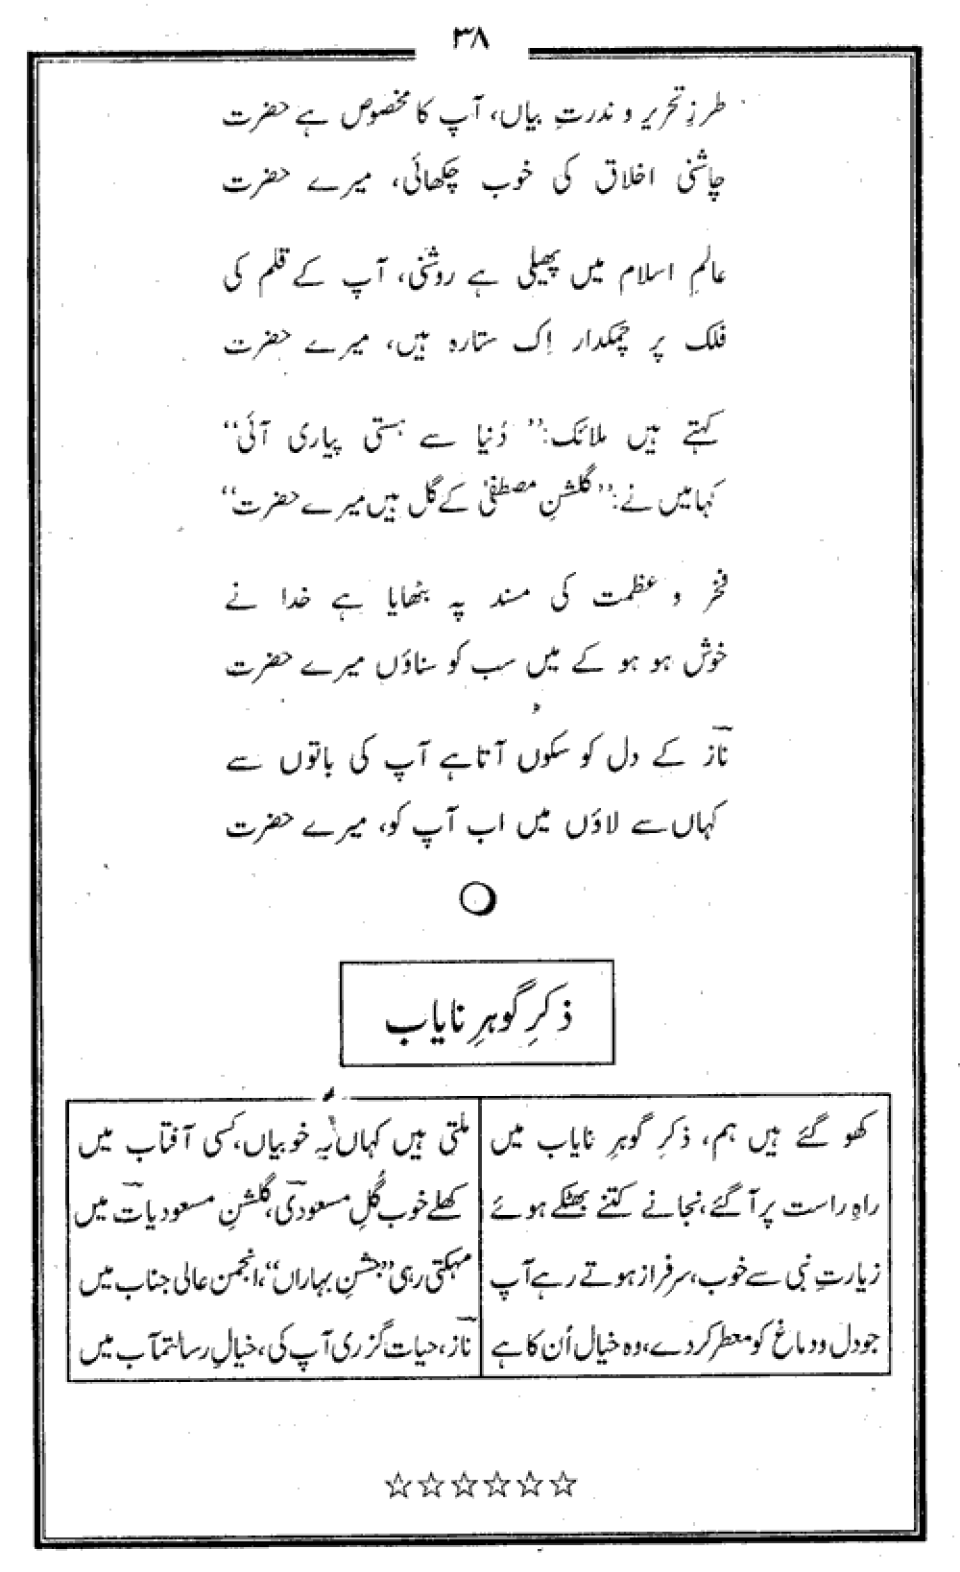 ۳۸
طرزِ تحریر و ندرتِ بیاں، آپ کا مخصوص ہے حضرت
چاشنی اخلاق کی خوب چکھائی، میرے حضرت
عالمِ اسلام میں پھیلی ہے روشنی، آپ کے قلم کی
فلک پر چمکدار اِک ستارہ ہیں، میرے حضرت
کہتے ہیں ملائک:’’ دُنیا سے ہستی پیاری آئی‘‘
کہا میں نے:’’گلشنِ مصطفیٰ کے گل ہیں میرے حضرت‘‘
فخر و عظمت کی مسند پہ بٹھایا ہے خدا نے
خوش ہو ہو کے میں سب کو سناؤں میرے حضرت
ناز کے دل کو سکوں آتا ہے آپ کی باتوں سے
کہاں سے لاؤں میں اب آپ کو، میرے حضرت
ذکرِ گوہرِ نایاب
کھو گئے ہیں ہم، ذکرِ گوہرِ نایاب میں ملتی ہیں کہاں یہ خوبیاں، کسی آفتاب میں
راہِ راست پر آگئے، نجانے کتنے بھٹکے ہوئے کھلے خوب گُلِ مسعودی، گلشنِ مسعودیات میں
زیارتِ نبی سے خوب، سرفراز ہوتے رہے آپ مہکتی رہی ’’جشنِ بہاراں‘‘، انجمن عالی جناب میں
جو دل و دماغ کو معطر کر دے، وہ خیال اُن کا ہے ناز، حیات گزری آپ کی، خیالِ رسالتمآب میں
☆☆☆☆☆☆